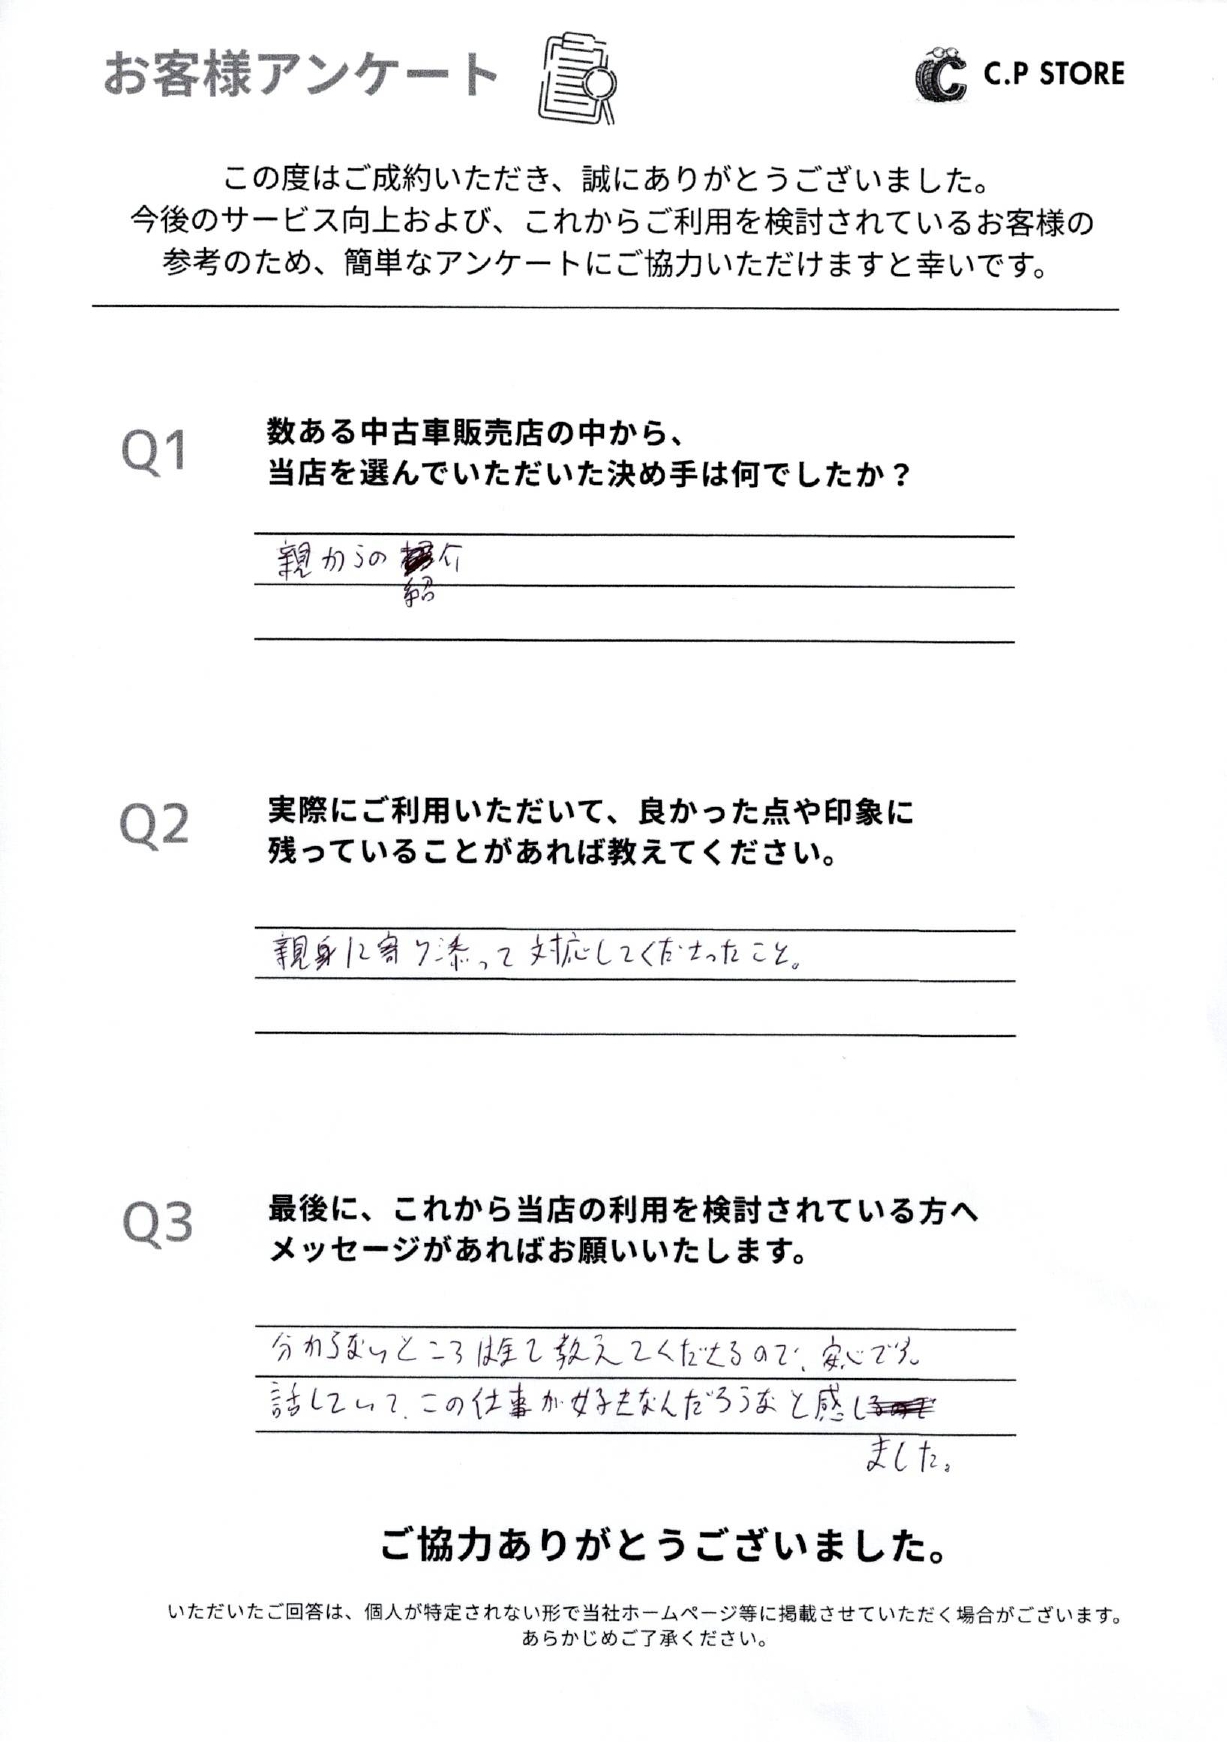 お客様アンケート
C.P STORE
この度はご成約いただき、誠にありがとうございました。
今後のサービス向上および、これからご利用を検討されているお客様の
参考のため、簡単なアンケートにご協力いただけますと幸いです。
Q1
数ある中古車販売店の中から、
当店を選んでいただいた決め手は何でしたか?
親からの 介
紹
Q2
実際にご利用いただいて、良かった点や印象に
残っていることがあれば教えてください。
親身に寄り添って対応してくださったこと。
Q3
最後に、これから当店の利用を検討されている方へ
メッセージがあればお願いいたします。
分からないところは全て教えてくださるので、安心です。
話していて、この仕事が好きなんだろうなと感じ
ました。
ご協力ありがとうございました。
いただいたご回答は、個人が特定されない形で当社ホームページ等に掲載させていただく場合がございます。
あらかじめご了承ください。